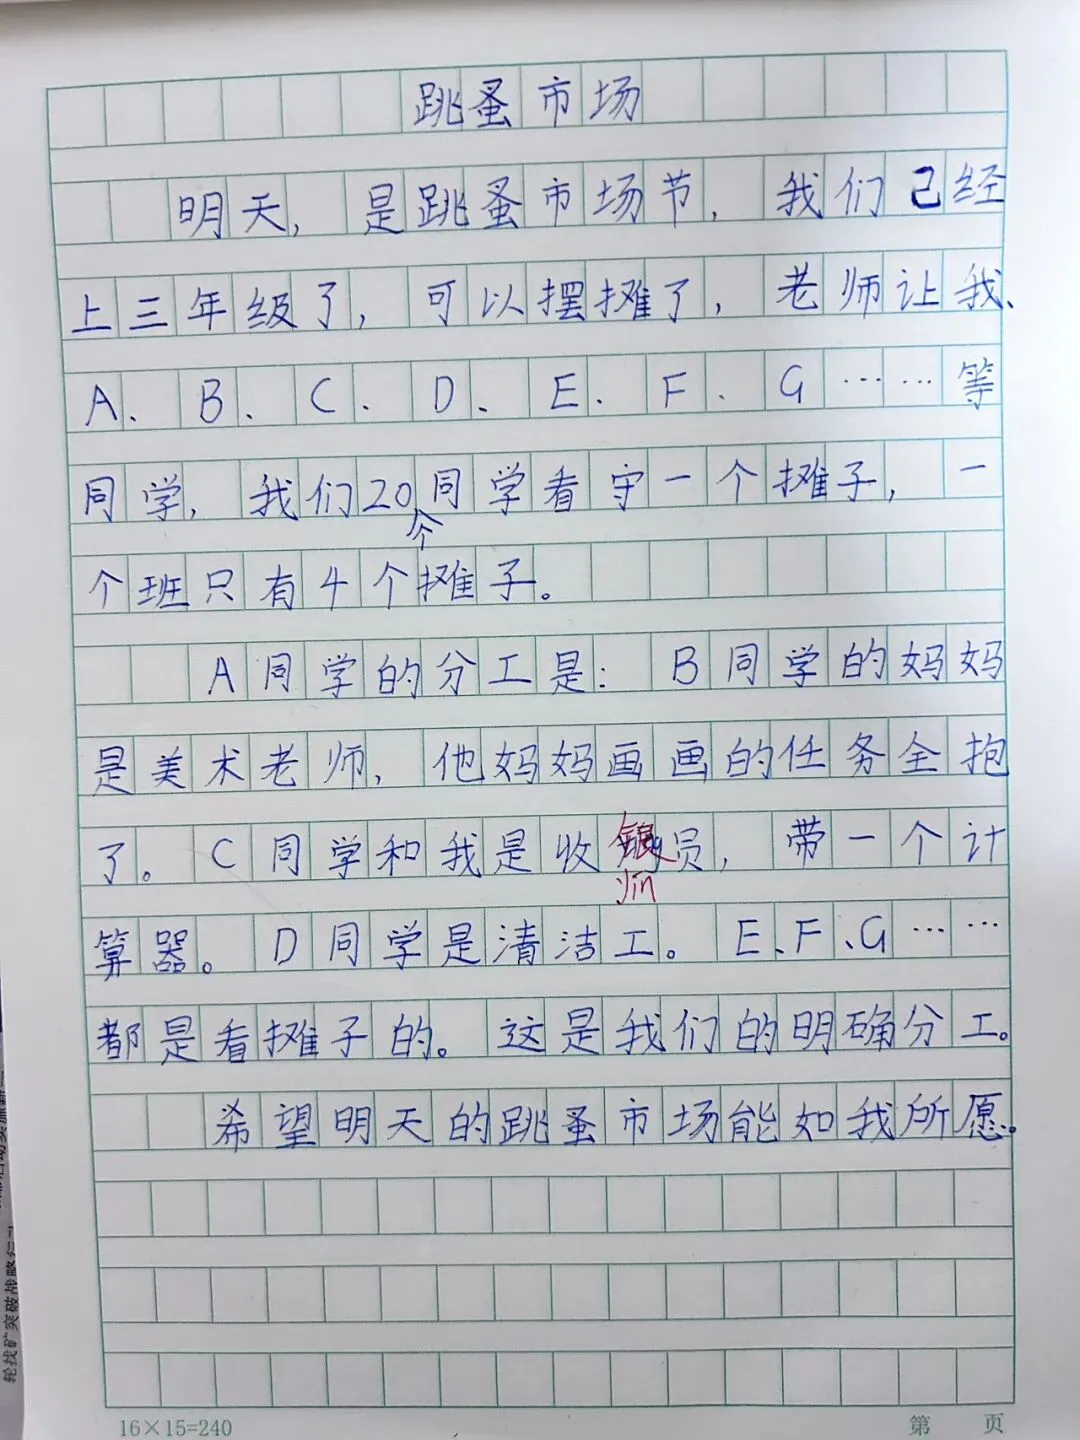 跳蚤市场
明天，是跳蚤市场节，我们己经
上三年级了，可以摆摊了，老师让我、
A、B、C、D、E、F、G……等
同学，我们20个同学看守一个摊子，一
个班只有4个摊子。
A同学的分工是：B同学的妈妈
是美术老师，他妈妈画画的任务全抱
了。C同学和我是收银员，带一个计
yin
算器。D同学是清洁工。E、F、G……
都是看摊子的。这是我们的明确分工。
希望明天的跳蚤市场能如我所愿。
16×15=240
第 页
轮找矿突破战略行动